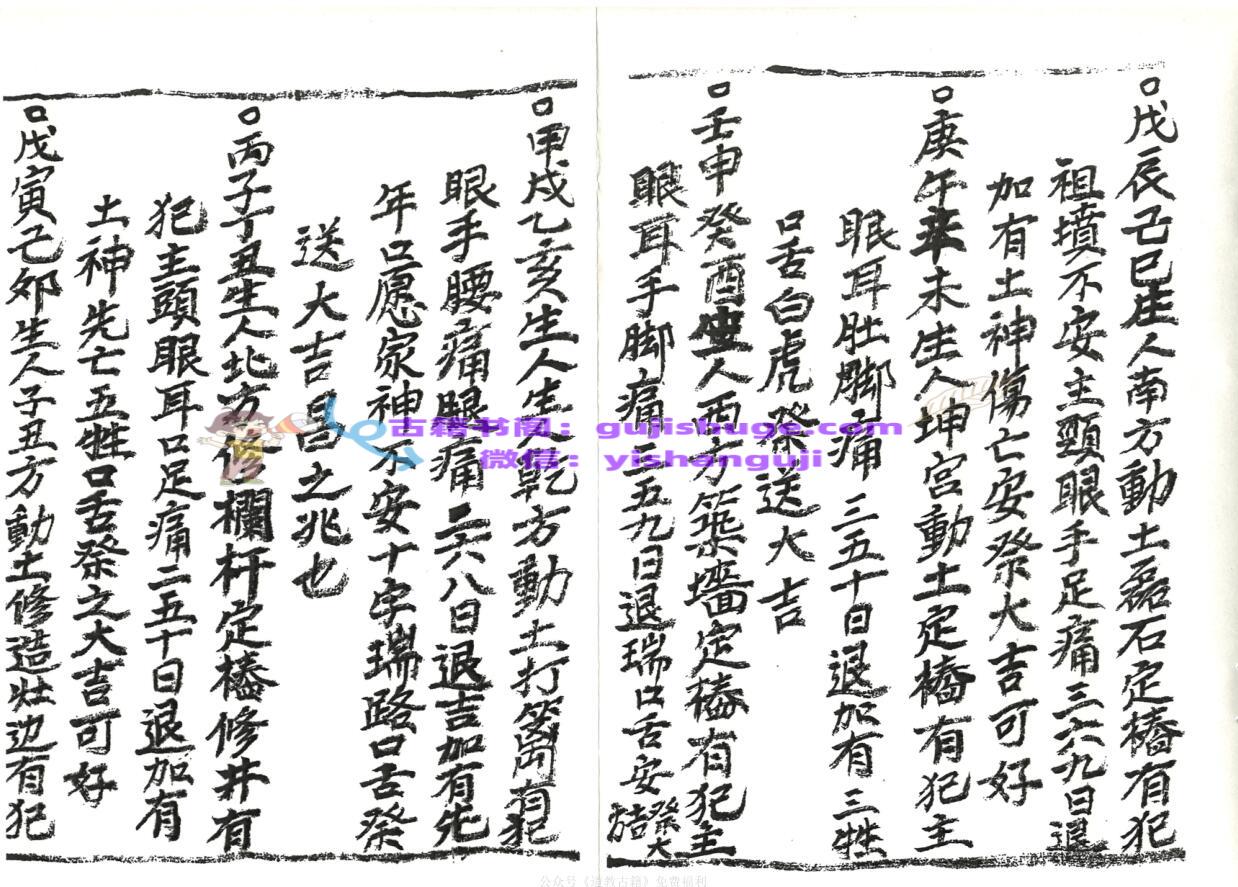 ○戊辰己巳生人南方動土磊石定樁有犯
祖墳不安主頸眼手足痛三六九日退
加有土神傷亡安祭大吉可好
○庚午辛未生人坤宫動土定樁有犯主
眼耳肚脚痛三五十日退加有三牲
口舌白虎祭送大吉
○壬申癸酉生人西方築墻定樁有犯主
眼耳手脚痛三五九日退瑞口舌安祭大吉
○甲戌乙亥生人生人乾方動土打篱有犯
眼手腰痛眼痛二六八日退吉加有先
年口愿家神不安十字瑞路口舌祭
送大吉昌之兆也
○丙子丁丑生人北方修欄杆定樁修井有
犯主頭眼耳口足痛二五十日退加有
土神先亡五牲口舌祭之大吉可好
○戊寅己卯生人子丑方動土修造灶边有犯
古籍书阁：gujishuge.com
微信：yishanguji
公众号《道教古籍》免费福利